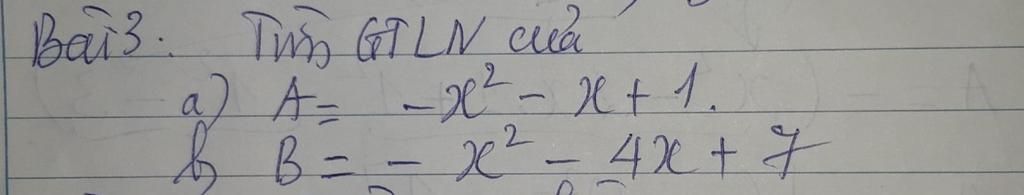 Bài 3: Tìm GTLN của
a) A = -x² - x + 1.
b) B = - x² - 4x + 7